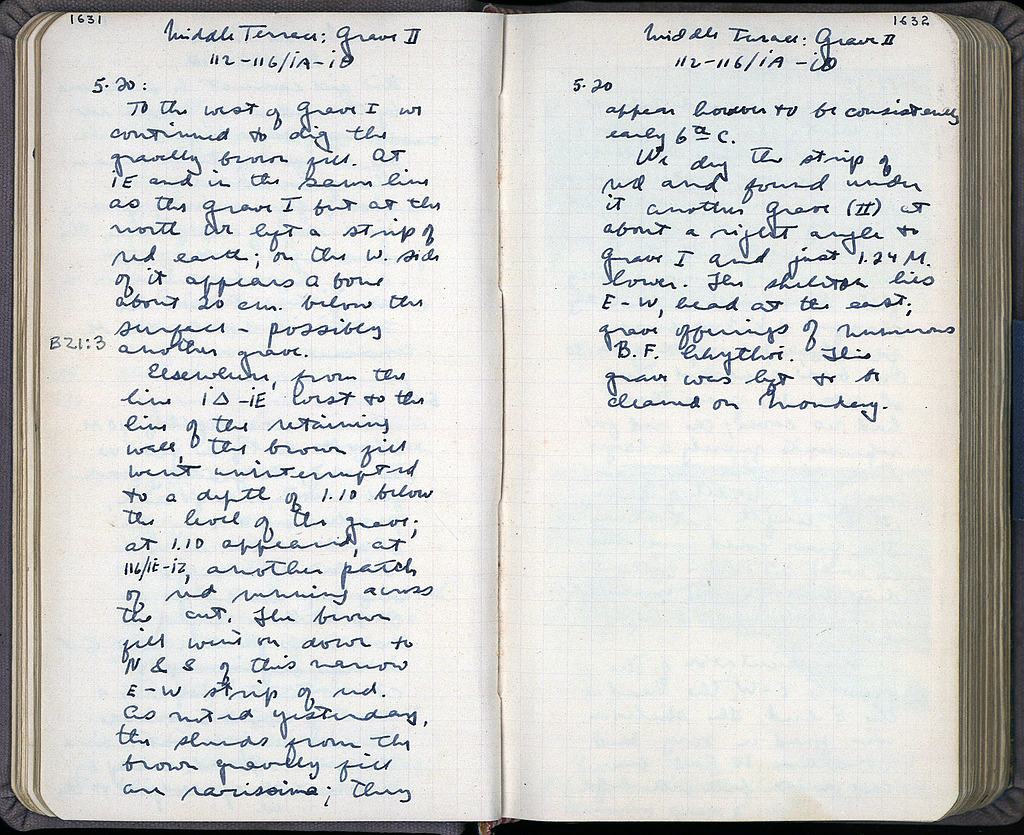 1631
Middle Terrace: Grave II
112-116/ΙΑ-ΙΘ
5.20:
To the west of Grave I we
continued to dig the
gravelly brown fill. At
ΙΕ and in the same line
as the Grave I but at the
north we left a strip of
red earth; on the W. side
of it appears a bone
about 20 cm. below the
surface - possibly
B21:3 another grave.
Elsewhere, from the
line ΙΔ-ΙΕ West to the
line of the retaining
wall, the brown fill
went uninterrupted
to a depth of 1.10 below
the level of the grave;
at 1.10 appeared, at
116/ΙΕ-ΙΖ, another patch
of red running across
the cut. The brown
fill went on down to
N & S of this narrow
E-W strip of red.
As noted yesterday,
the sherds from the
brown gravelly fill
are rarissima; they
1632
Middle Terrace: Grave II
112-116/ΙΑ-ΙΘ
5.20
appear however to be consistently
early 6th C.
We dug the strip of
red and found under
it another Grave (II) at
about a right angle to
Grave I and just 1.24 M.
lower. The skeleton lies
E-W, head at the east;
grave offerings of numerous
B.F. lekythoi. This
grave was left to be
cleaned on Monday.